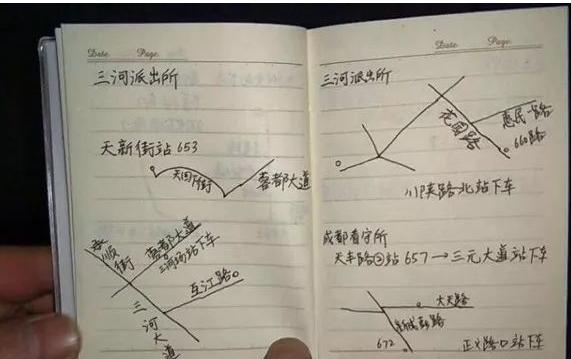 Date. Page.
三河派出所
天新街站 653
天回下街
蓉都大道
顺街
蓉都大道
三河场站下车
互江路
三河大道
Date. Page.
三河派出所
花园路
惠民路
660路
川陕路北站下车
成都看守所
天丰路口站 657 → 三元大道站下车
大天路
新成彭路
672
正义路口站下车